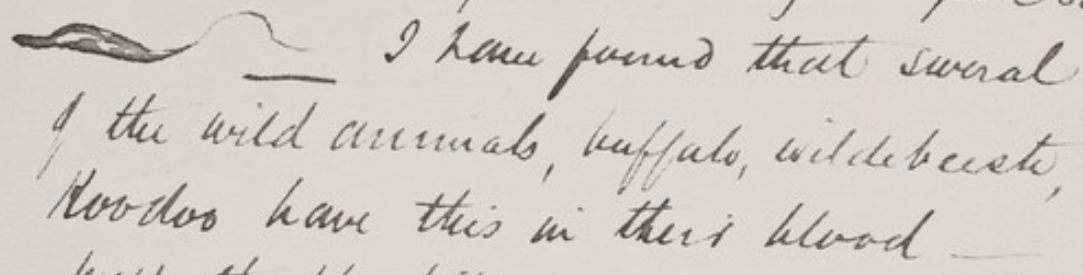 — I have found that several
of the wild animals, buffalo, wildebeeste,
Koodoo have this in their blood —